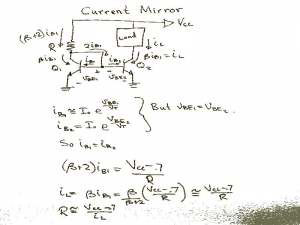 Current Mirror
Vcc
(β+2) iB1
R
2iB1
Load
iL
βiB1
βiB1 = iL
Q1
Q2
+ -
VBE1 VBE2
iB1 ≅ Io e^(VBE1/VT)
iB2 = Io e^(VBE2/VT)
But VBE1 = VBE2
So iB1 = iB2
(β+2) iB1 = (Vcc - .7)/R
iL = βiB1 = β/(β+2) (Vcc - .7 / R) ≅ (Vcc - .7)/R
R ≅ (Vcc - .7)/iL